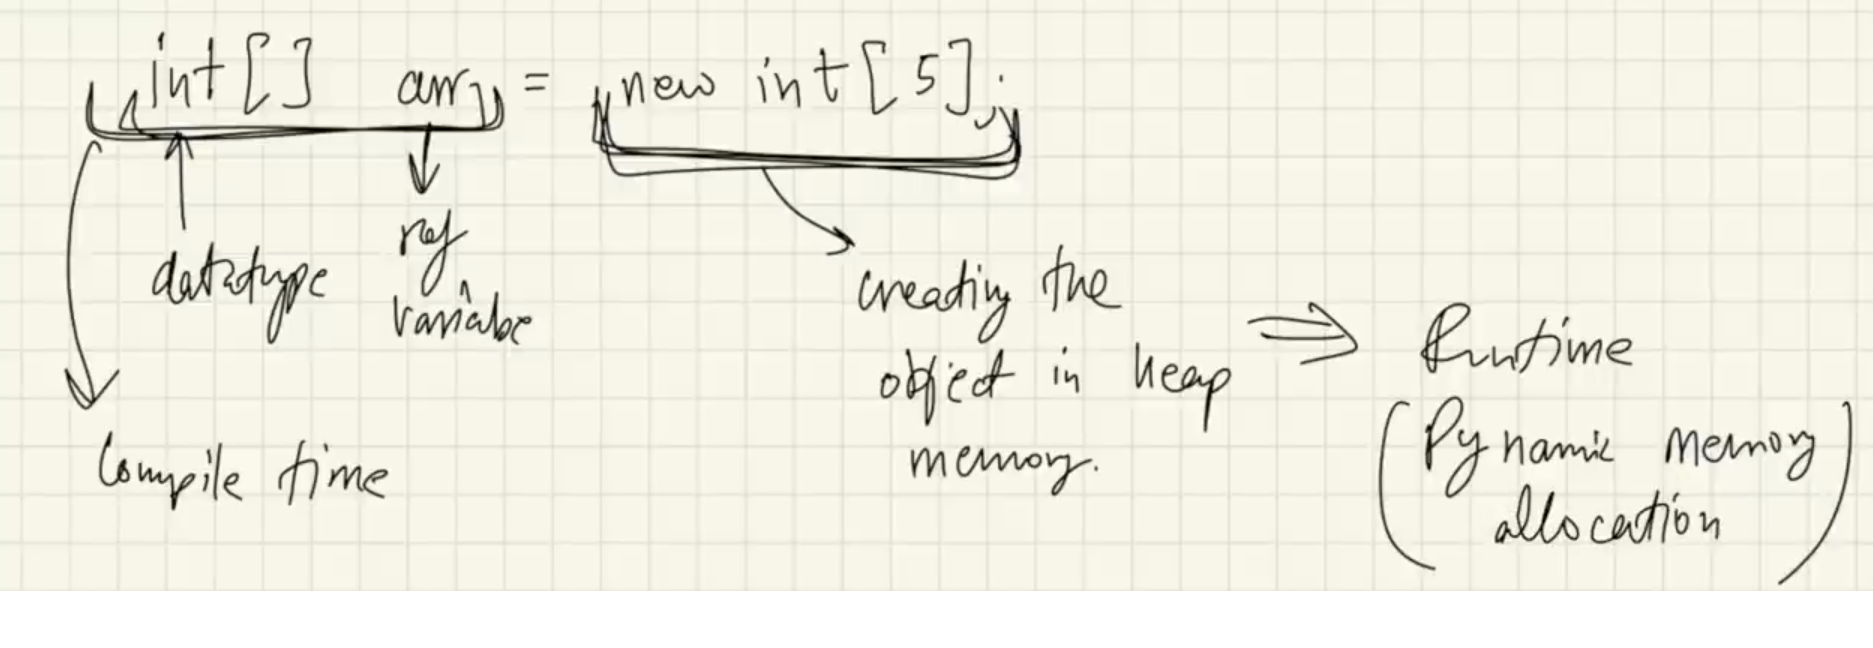 int[] arr = new int[5];
datatype
ref
variable
Compile time
creating the
object in heap
memory.
Runtime
(Dynamic Memory
allocation)